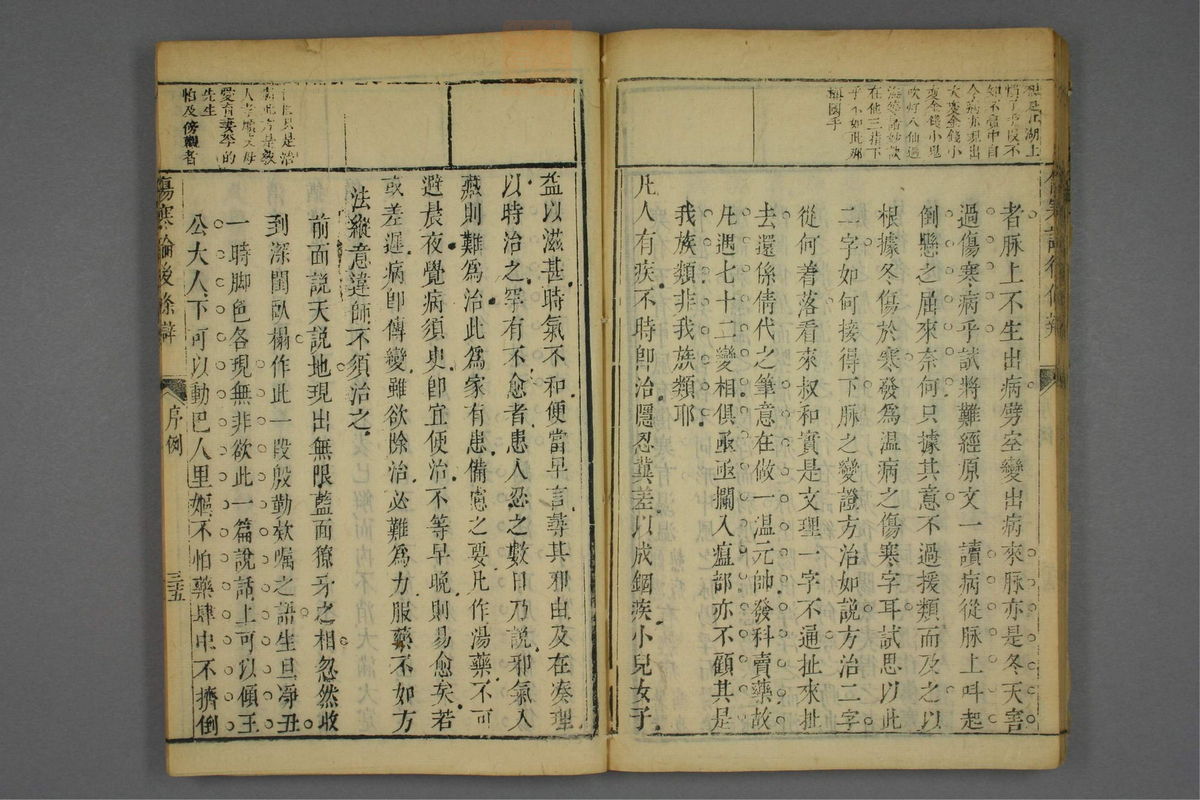 者脉上不生出病劈空變出病來脉亦是冬天害
過傷寒病乎試將難經原文一讀病從脉上呌起
倒懸之屈來奈何只據其意不過援類而及之以
根據冬傷於寒發爲温病之傷寒字耳試思以此
二字如何接得下脉之變證方治如說方治二字
從何着落看來叔和實是文理一字不通扯來扯
去還係倩代之筆意在做一温元帥發科賣藥故
凡遇七十二變相俱亟亟攔入瘟部亦不顧其是
我族類非我族類耶
凡人有疾不時卽治隱忍冀差以成錮疾小兒女子
益以滋甚時氣不和便當早言尋其邪由及在凑理
以時治之罕有不愈者患人忍之數日乃說邪氣入
藏則難爲治此爲家有患備慮之要凡作湯藥不可
避晨夜覺病須臾卽宜便治不等早晚則易愈矣若
或差遲病卽傳變雖欲除治必難爲力服藥不如方
法縱意違師不須治之
前面說天說地現出無限藍面獠牙之相忽然收
到深閨臥榻作此一段殷勤欵囑之語生旦淨丑
一時脚色各現無非欲此一篇說話上可以傾王
公大人下可以動巴人里嫗不怕藥肆中不擠倒
傷寒論後條辯
序例
三五
在他三指下
乎不如此那
稱國手
愛育妻孥的
先生
怕及傍觀者